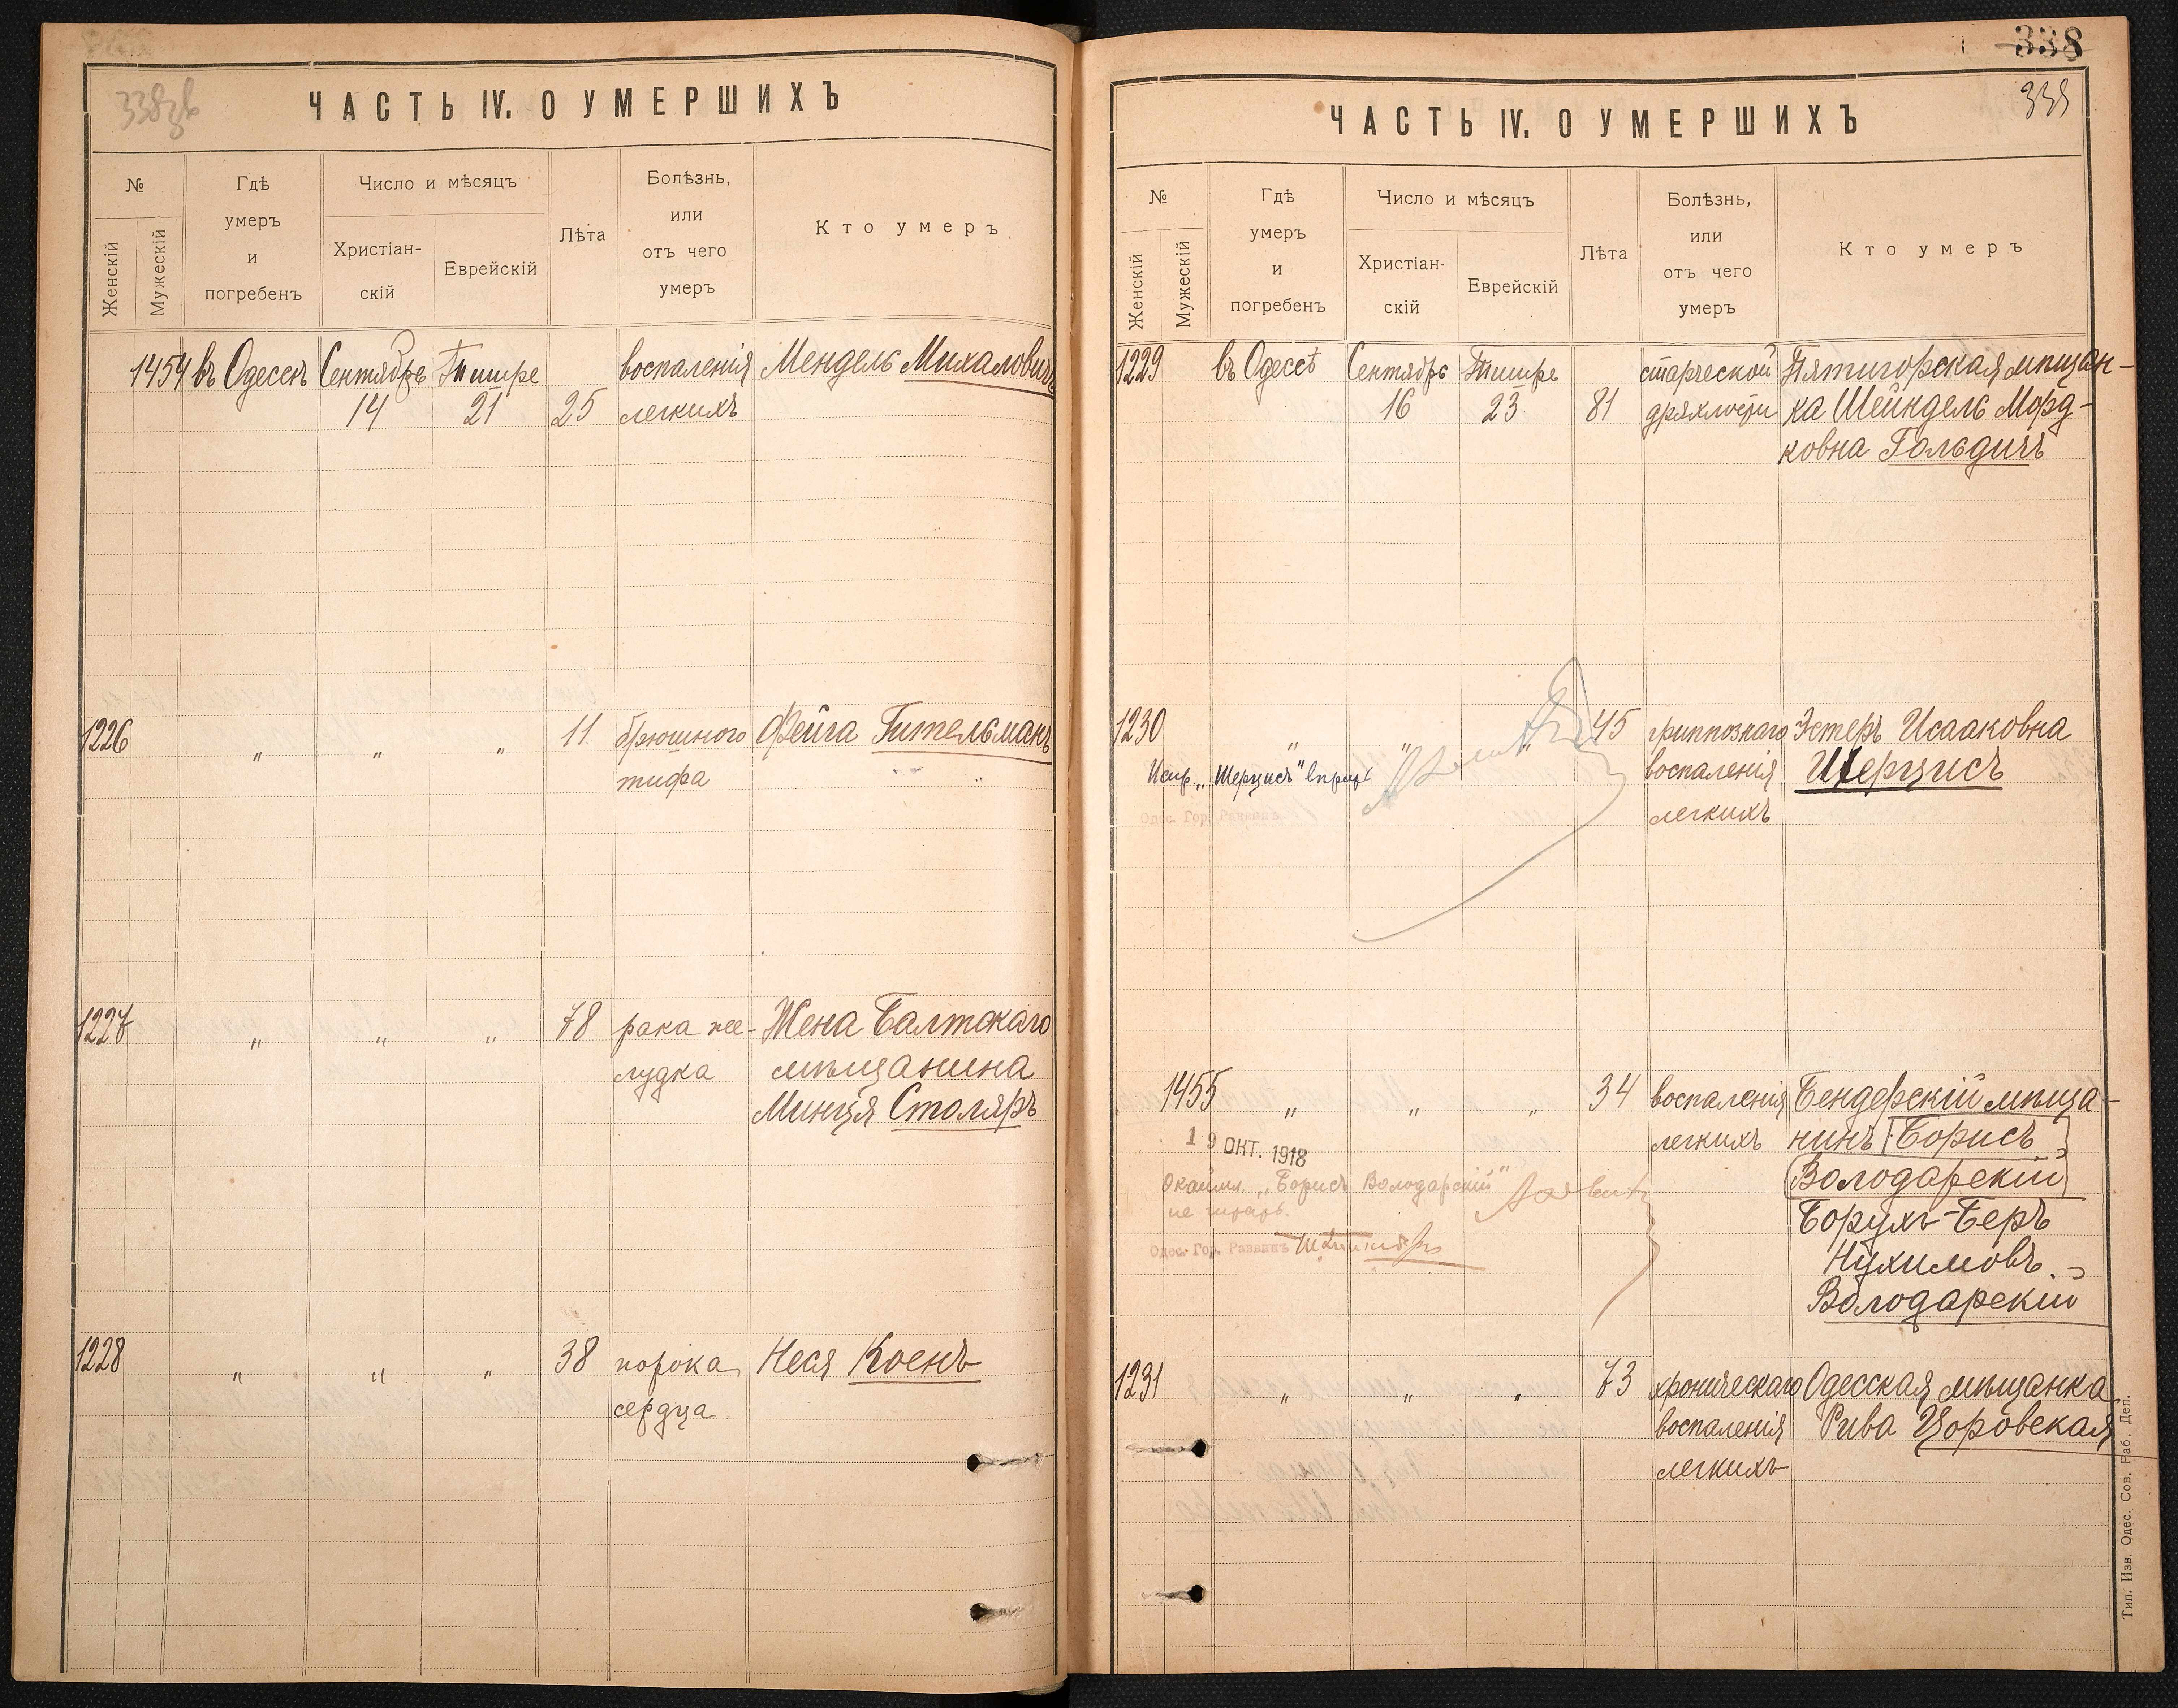 338
ЧАСТЬ IV. О УМЕРШИХЪ
№
Женскій
Мужескій
Гдѣ
умеръ
и
погребенъ
Число и мѣсяцъ
Христіан-
скій
Еврейскій
Лѣта
Болѣзнь,
или
отъ чего
умеръ
Кто умеръ
1454 въ Одессѣ Сентябрь Тишре воспаленія Мендель Михаловичъ
14 21 25 легкихъ
1226 " " " 11 брюшного Фейга Гительманъ
тифа
1227 " " " 78 рака же- Жена Балтскаго
лудка мѣщанина
Минця Столяръ
1228 " " " 38 порока Неся Коенъ
сердца
338
339
ЧАСТЬ IV. О УМЕРШИХЪ
№
Женскій
Мужескій
Гдѣ
умеръ
и
погребенъ
Число и мѣсяцъ
Христіан-
скій
Еврейскій
Лѣта
Болѣзнь,
или
отъ чего
умеръ
Кто умеръ
1229 въ Одессѣ Сентябрь Тишре старческой Пятигорская мѣщан-
16 23 81 дряхлости ка Шейндель Морд-
ковна Гольдичъ
1230 " " " 45 гриппознаго Эстеръ Исааковна
Испр. „Шерцисъ" воспаленія Шерцисъ
Одес. Гор. Раввинъ легкихъ
1455 " " " 34 воспаленія Бендерскій мѣща-
19 ОКТ. 1918 легкихъ нинъ Борисъ
„Борисъ Володарскій" Володарскій
не читать. Борухъ-Беръ
Одес. Гор. Раввинъ Нухимовъ
Володарскій
1231 " " " 73 хроническаго Одесская мѣщанка
воспаленія Рива Цоровская
легкихъ
Тип. Изв. Одес. Сов. Раб. Деп.